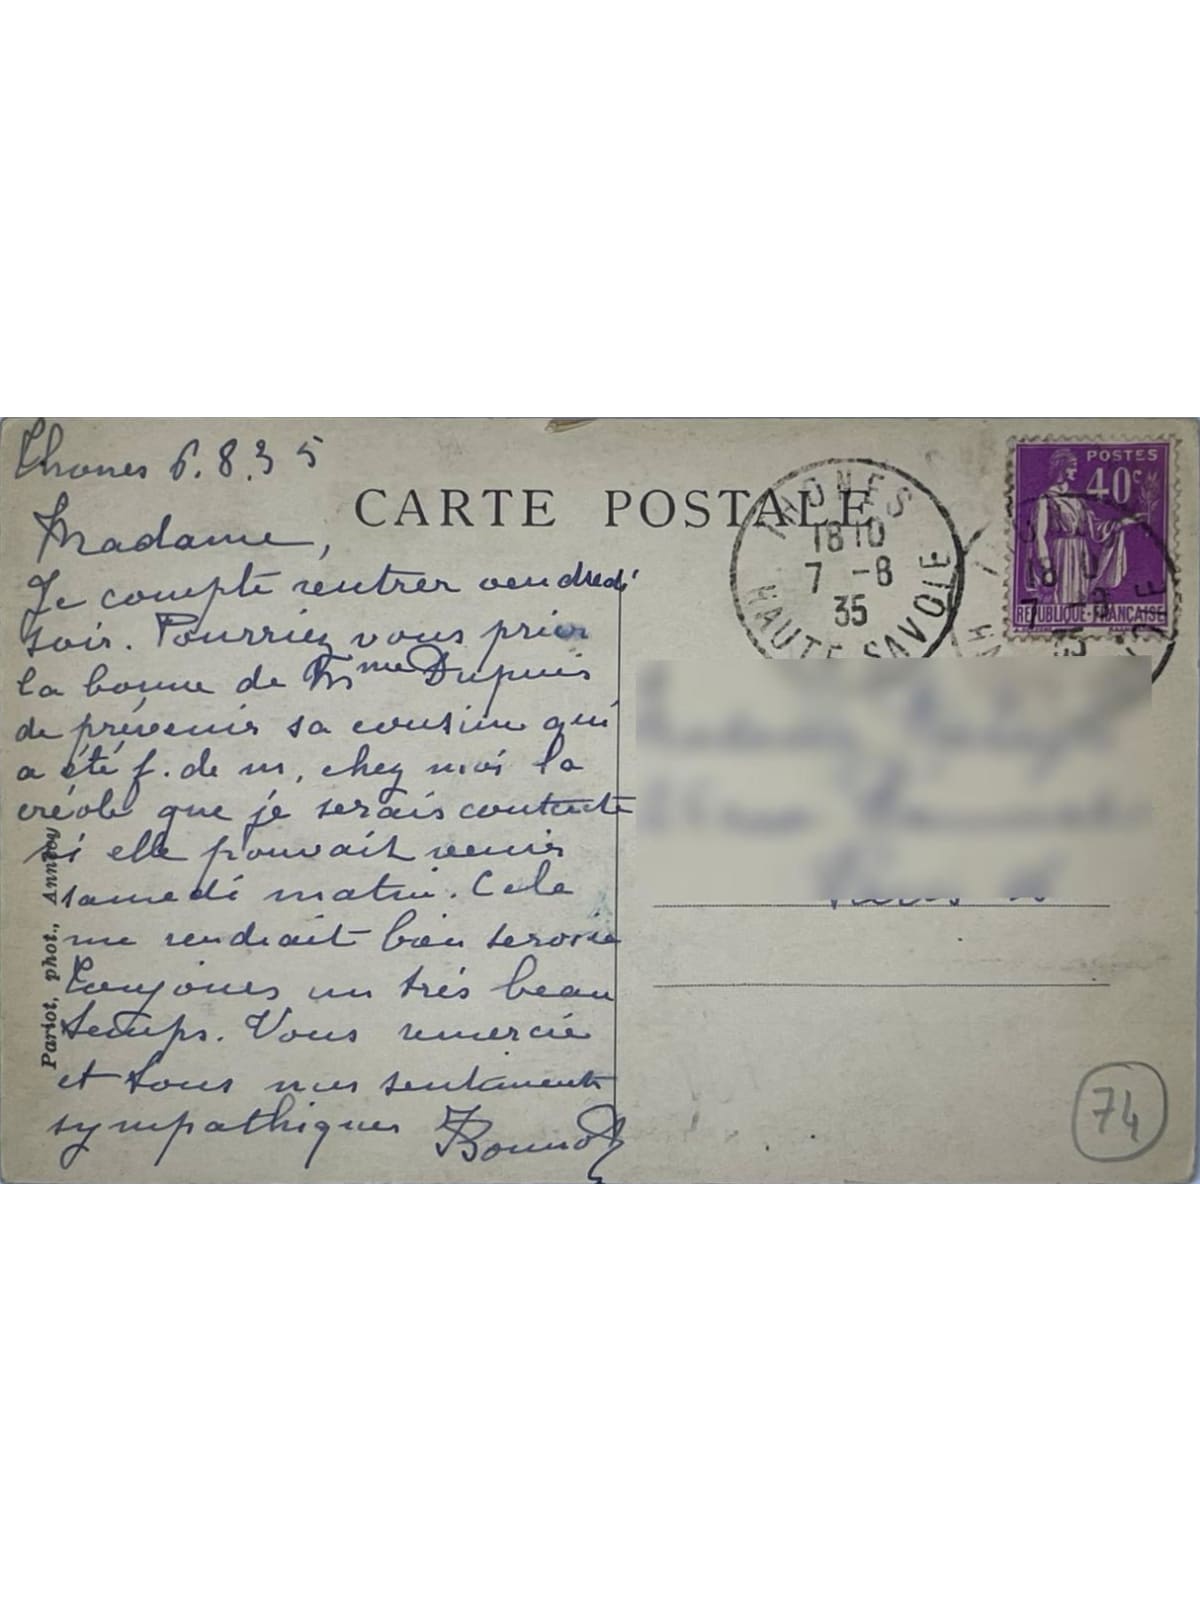 Thones 6.8.35
CARTE POSTALE
Madame,
Je compte rentrer vendredi
soir. Pourriez vous prier
la bonne de Mme Dupuis
de prévenir sa cousine qui
a été f. de m. chez moi la
créole que je serais contente
si elle pouvait venir
samedi matin. Cela
me rendrait bien service
Toujours un très beau
temps. Vous remercie
et tous mes sentiments
sympathiques Bonnot
Pariot, phot., Annecy
THONES
18 10
7 -8
35
HAUTE SAVOIE
POSTES
40c
REPUBLIQUE-FRANÇAISE
18 0
7
35
74